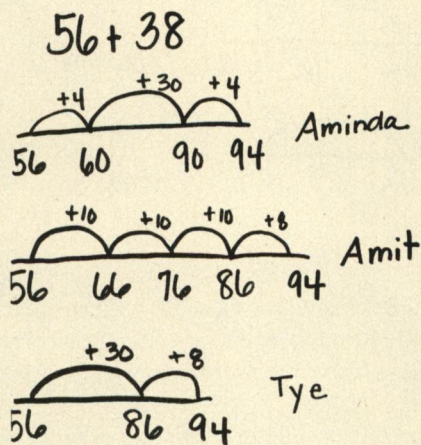 56 + 38
+4 +30 +4
56 60 90 94 Aminda
+10 +10 +10 +8
56 66 76 86 94 Amit
+30 +8
56 86 94 Tye